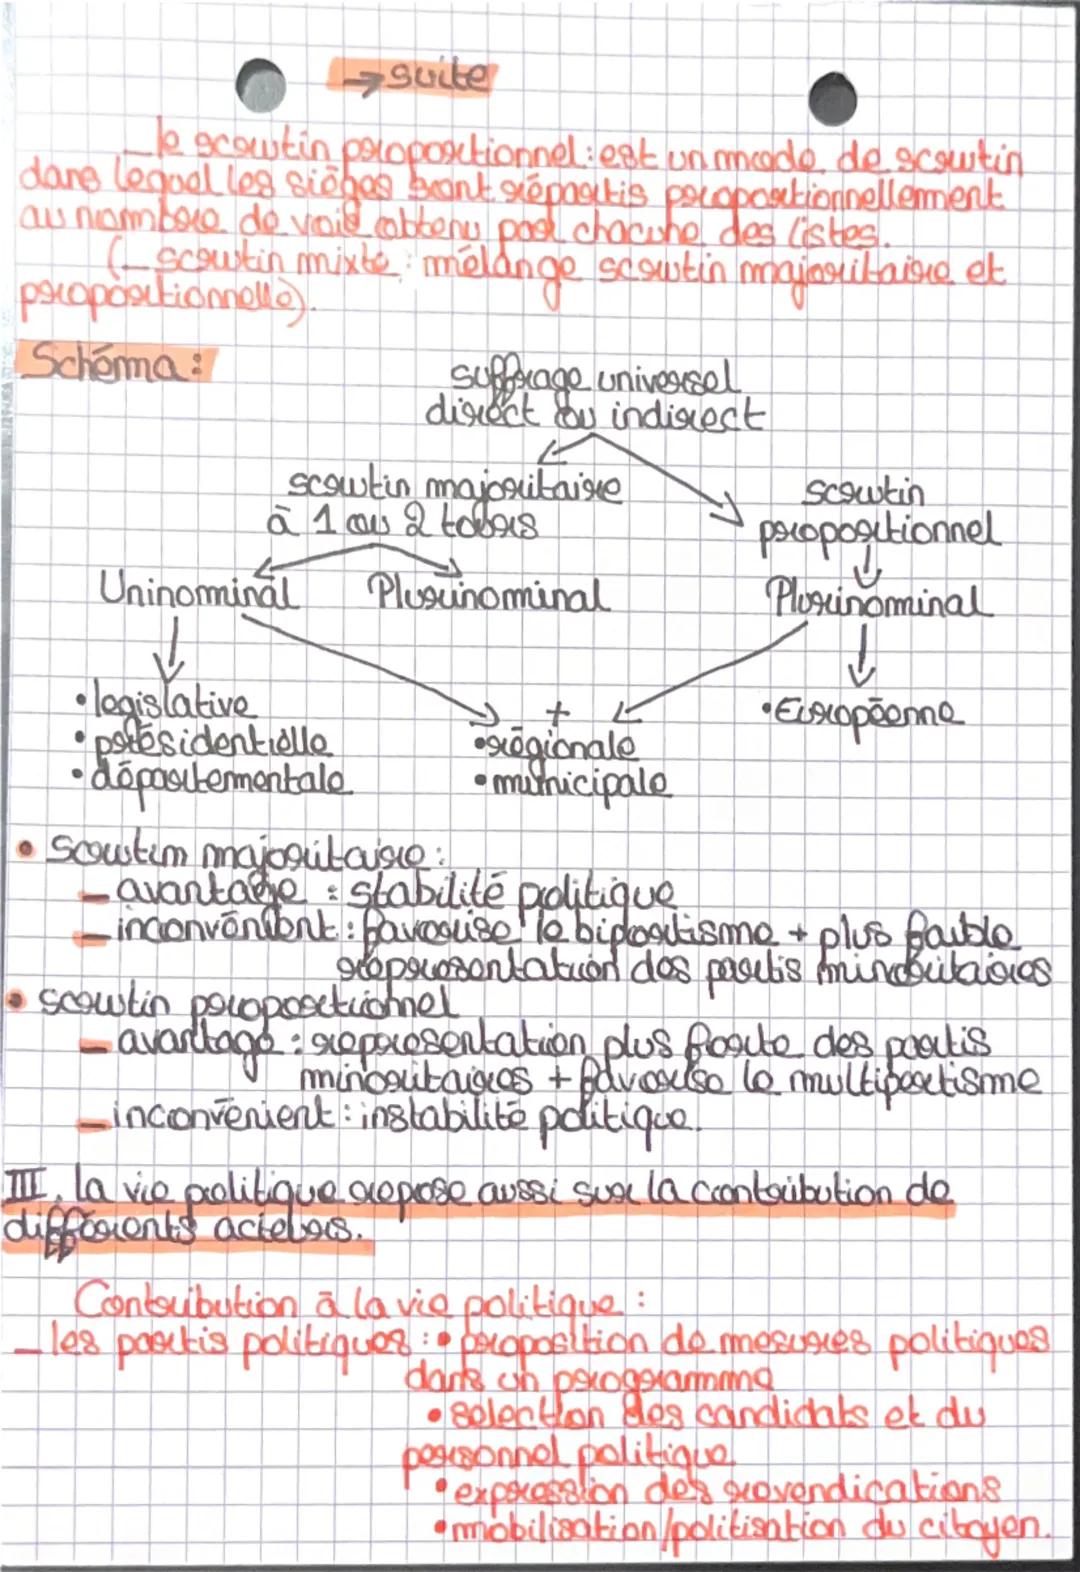 → suite
_le scrutin proportionnel : est un mode de scrutin
dans lequel les sièges sont répartis proportionnellement
au nombre de voie obtenu par chacune des listes.
(_ scrutin mixte : mélange scrutin majoritaire et
proportionnelle).
Schéma :
suffrage universel
direct ou indirect
scrutin majoritaire
à 1 ou 2 tours
scrutin
proportionnel
Uninominal
Plurinominal
Plurinominal
• legislative
• présidentielle
• départementale
+
• régionale
• municipale
• Européenne
• Scrutin majoritaire :
_ avantage : stabilité politique
_ inconvénient : favorise le bipartisme + plus faible
représentation des partis minoritaires
• scrutin proportionnel
_ avantage : représentation plus forte des partis
minoritaires + favorise le multipartisme
_ inconvénient : instabilité politique.
III. la vie politique repose aussi sur la contribution de
différents acteurs.
Contribution à la vie politique :
_ les partis politiques : • proposition de mesures politiques
dans un programme
• selection des candidats et du
personnel politique
• expression des revendications
• mobilisation/politisation du citoyen.